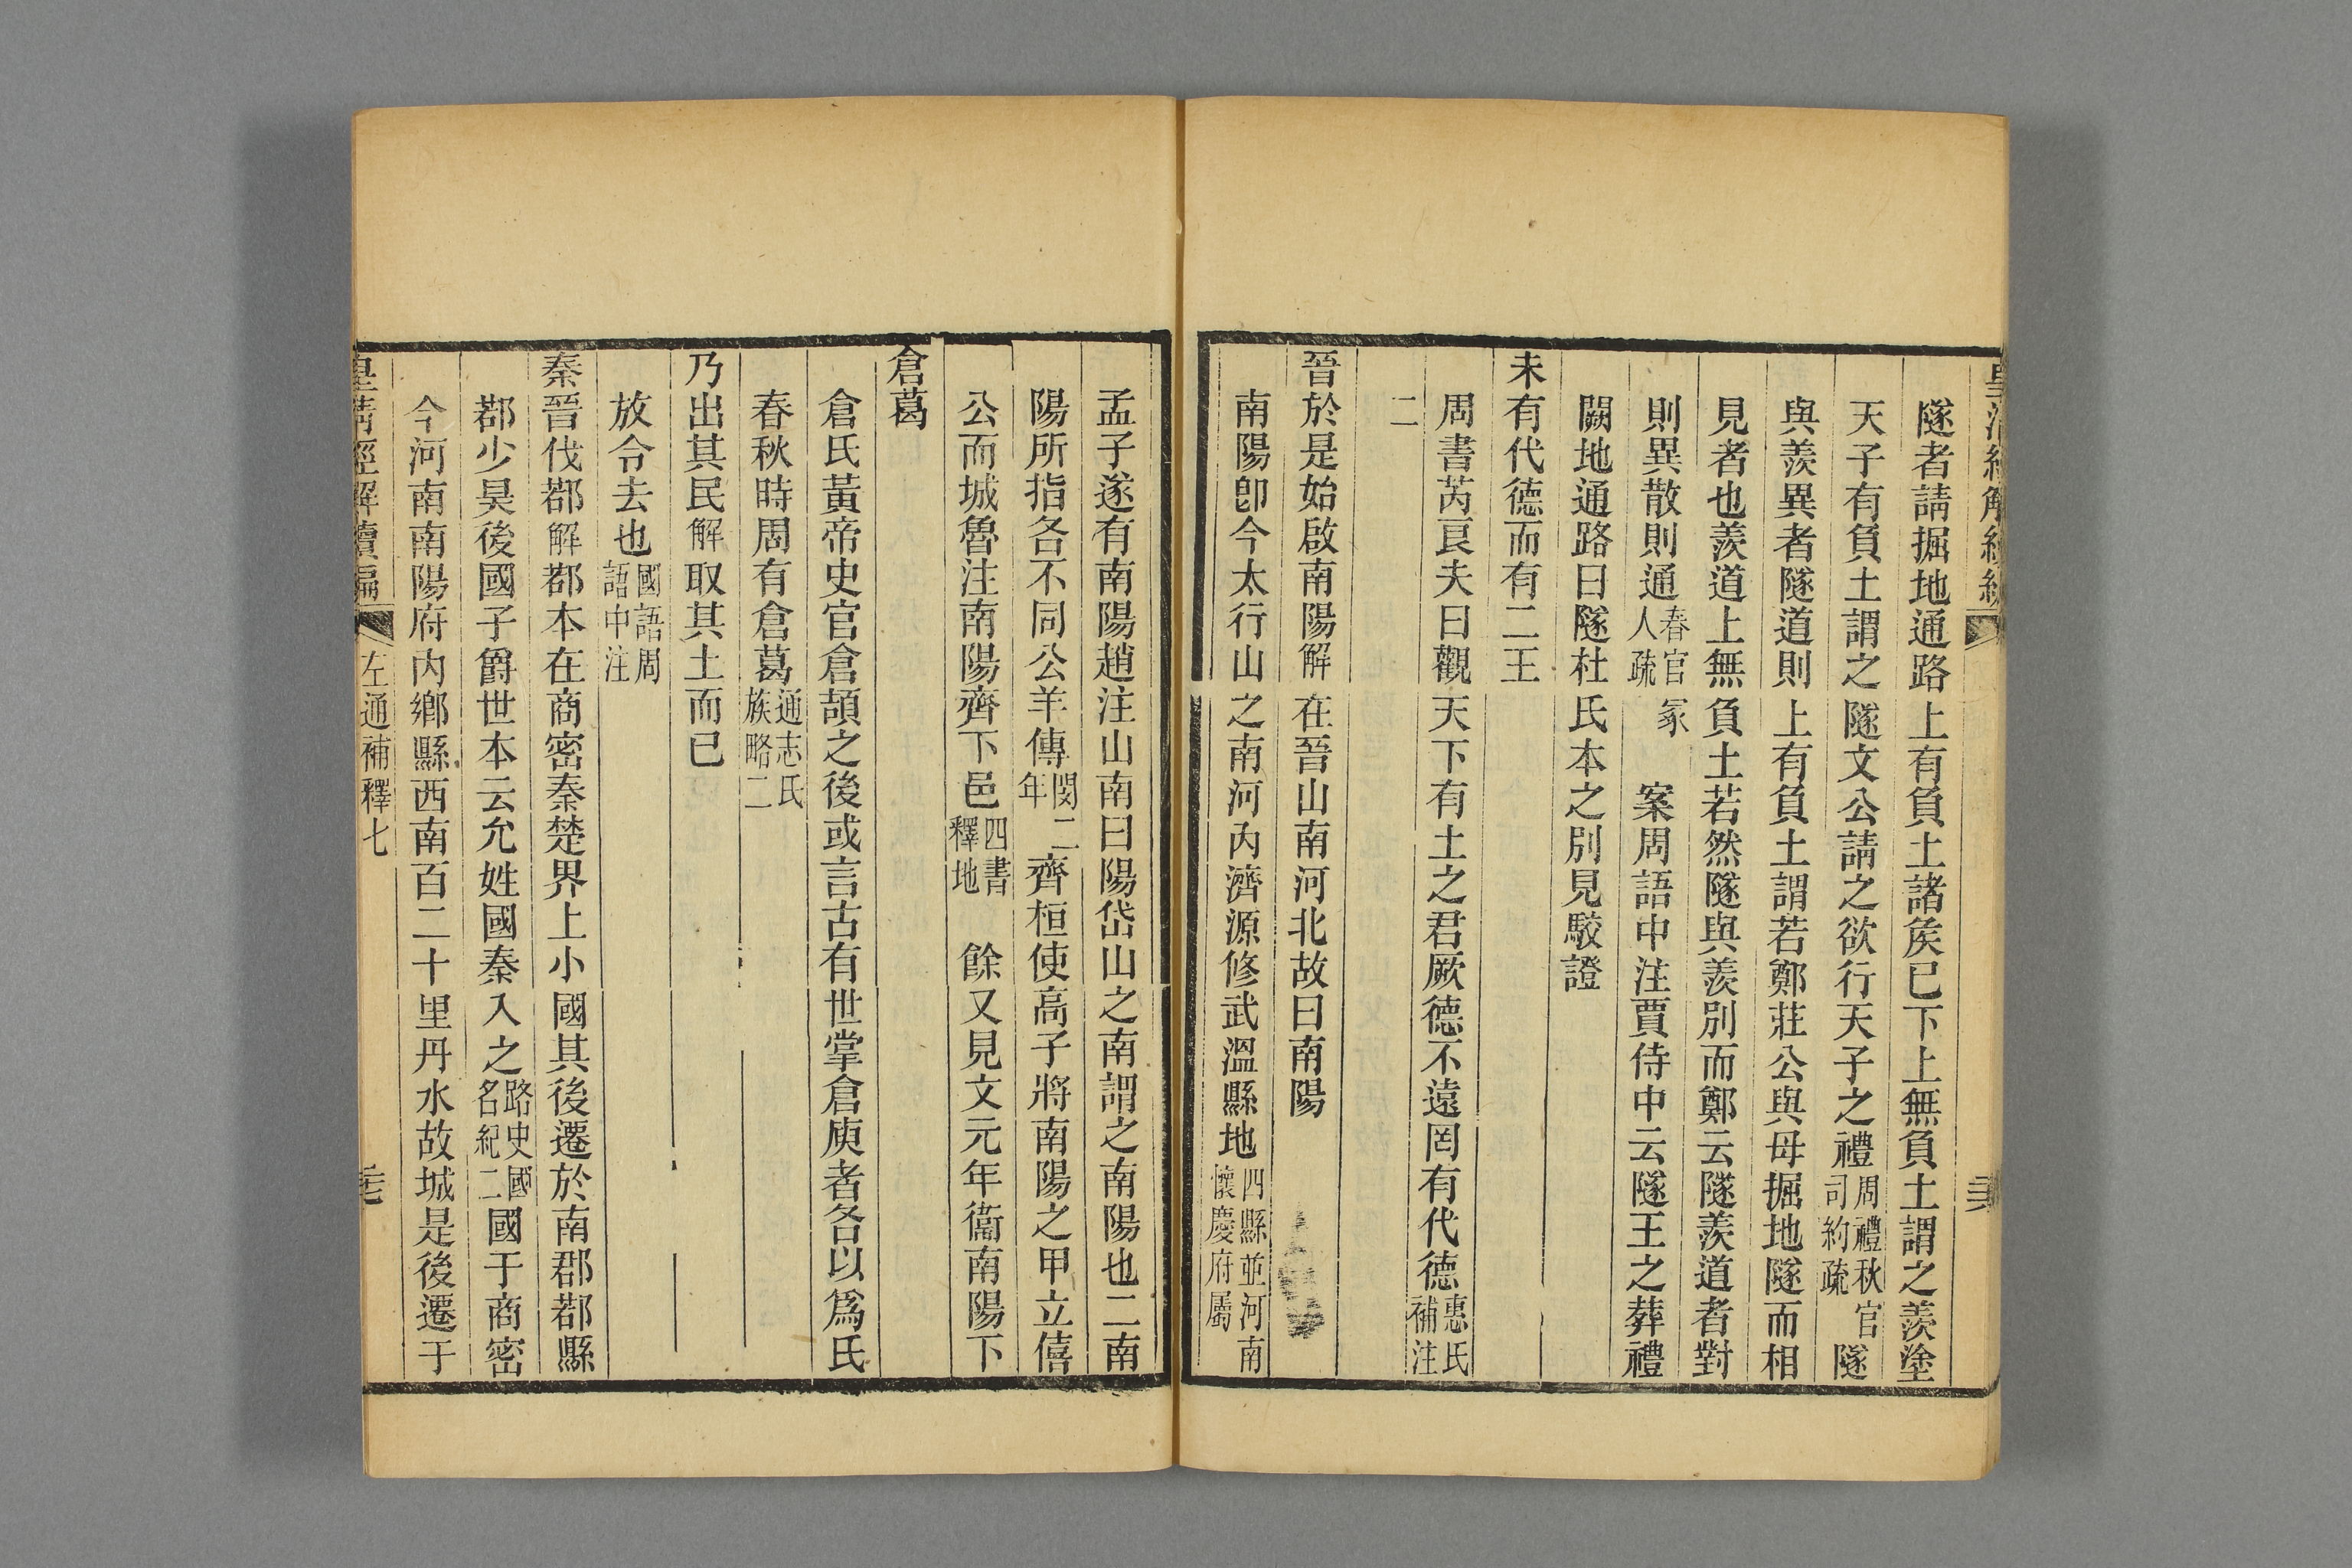 隧者請掘地通路上有負土諸矦已下上無負土謂之羨塗
天子有負土謂之隧文公請之欲行天子之禮周禮秋官司約疏隧
與羨異者隧道則上有負土謂若鄭莊公與母掘地隧而相
見者也羨道上無負土若然隧與羨別而鄭云隧羨道者對
則異散則通春官冢人疏案周語中注賈侍中云隧王之葬禮
闕地通路曰隧杜氏本之別見駮證
未有代德而有二王
周書芮良夫曰觀天下有土之君厥德不遠罔有代德惠氏補注
二
晉於是始啟南陽解在晉山南河北故曰南陽
南陽卽今太行山之南河內濟源修武溫縣地四縣並河南懷慶府屬
孟子遂有南陽趙注山南曰陽岱山之南謂之南陽也二南
陽所指各不同公羊傳閔二年齊桓使高子將南陽之甲立僖
公而城魯注南陽齊下邑四書釋地餘又見文元年衞南陽下
倉葛
倉氏黃帝史官倉頡之後或言古有世掌倉庾者各以爲氏
春秋時周有倉葛通志氏族略二
乃出其民解取其土而已
放令去也國語周語中注
秦晉伐鄀解鄀本在商密秦楚界上小國其後遷於南郡鄀縣
鄀少昊後國子爵世本云允姓國秦入之路史國名紀二國于商密
今河南南陽府內鄉縣西南百二十里丹水故城是後遷于
皇淸經解續編 左通補釋七